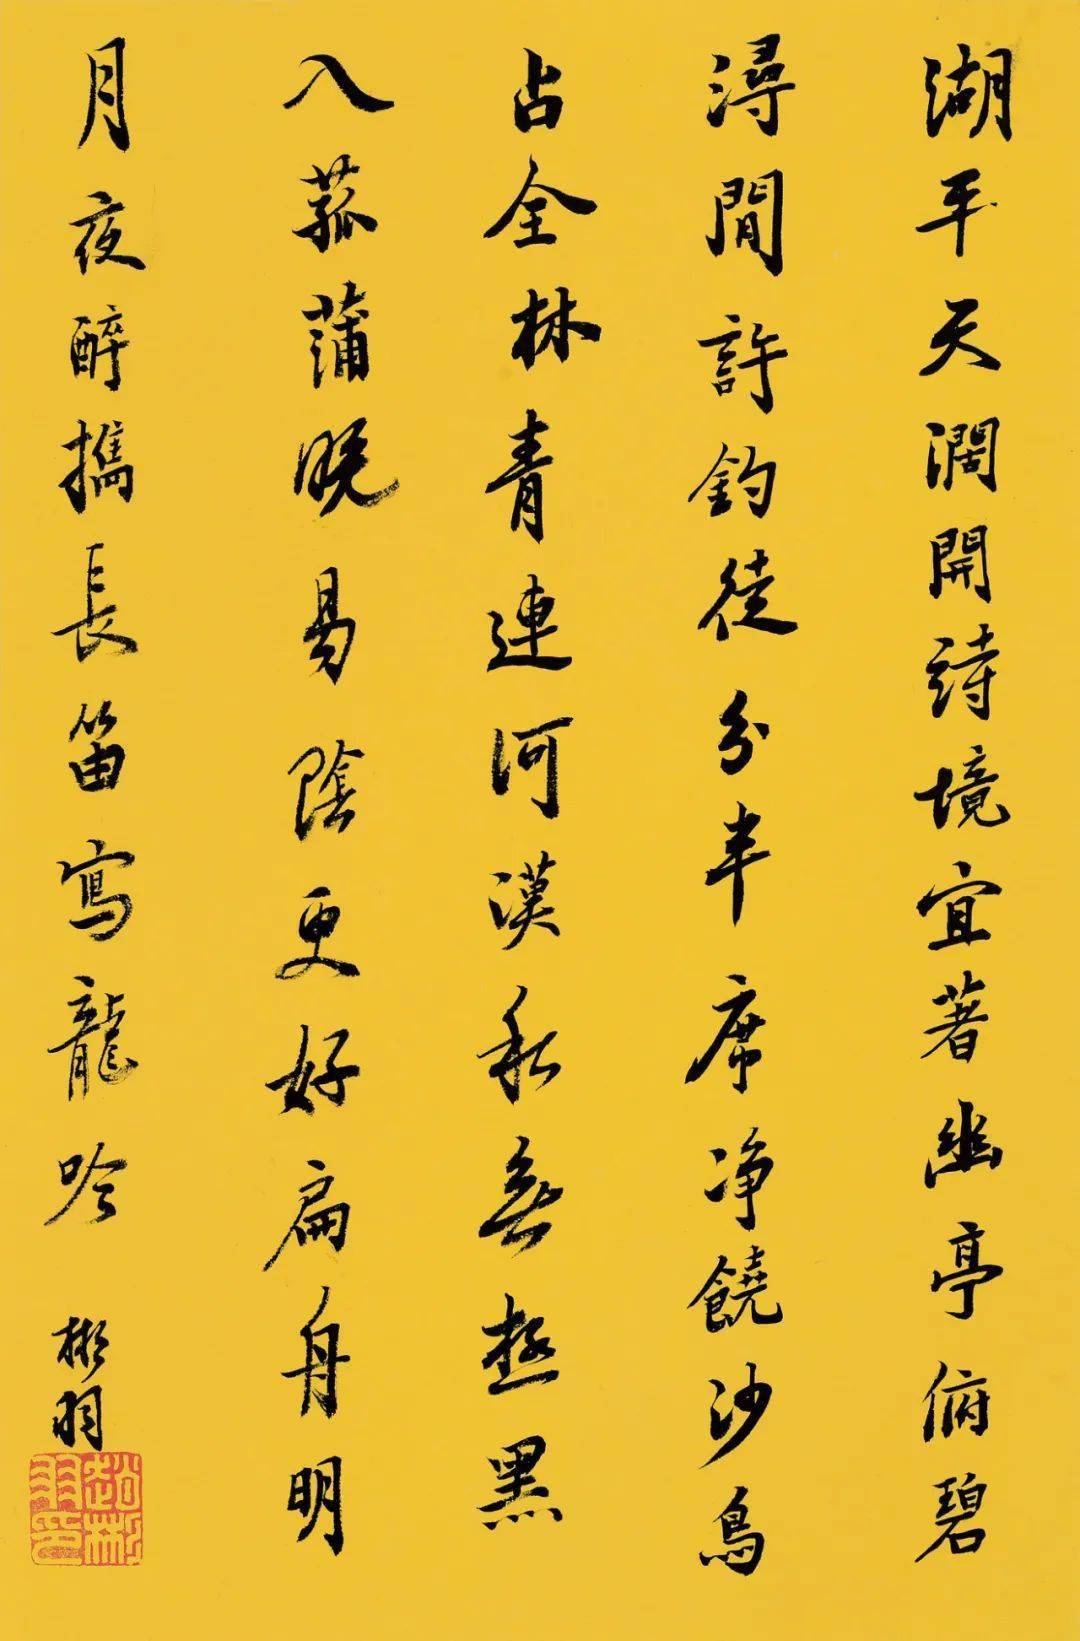 湖平天濶開詩境宜著幽亭俯碧
潯閒許釣徒分半席净饒沙鳥
占全林青連河漢秋無極黑
入菰蒲晚易陰更好扁舟明
月夜醉攜長笛寫龍吟
彬羽
趙彬羽印